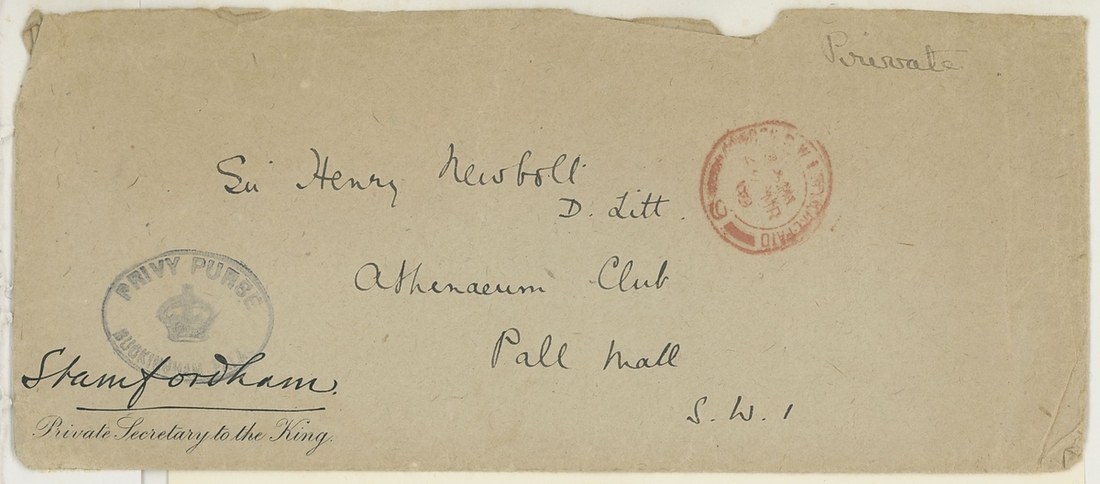 Private
Sir Henry Newbolt
D. Litt.
Athenaeum Club
Pall Mall
S. W. 1
PRIVY PURSE
BUCKINGHAM
Stamfordham.
Private Secretary to the King.
PAID